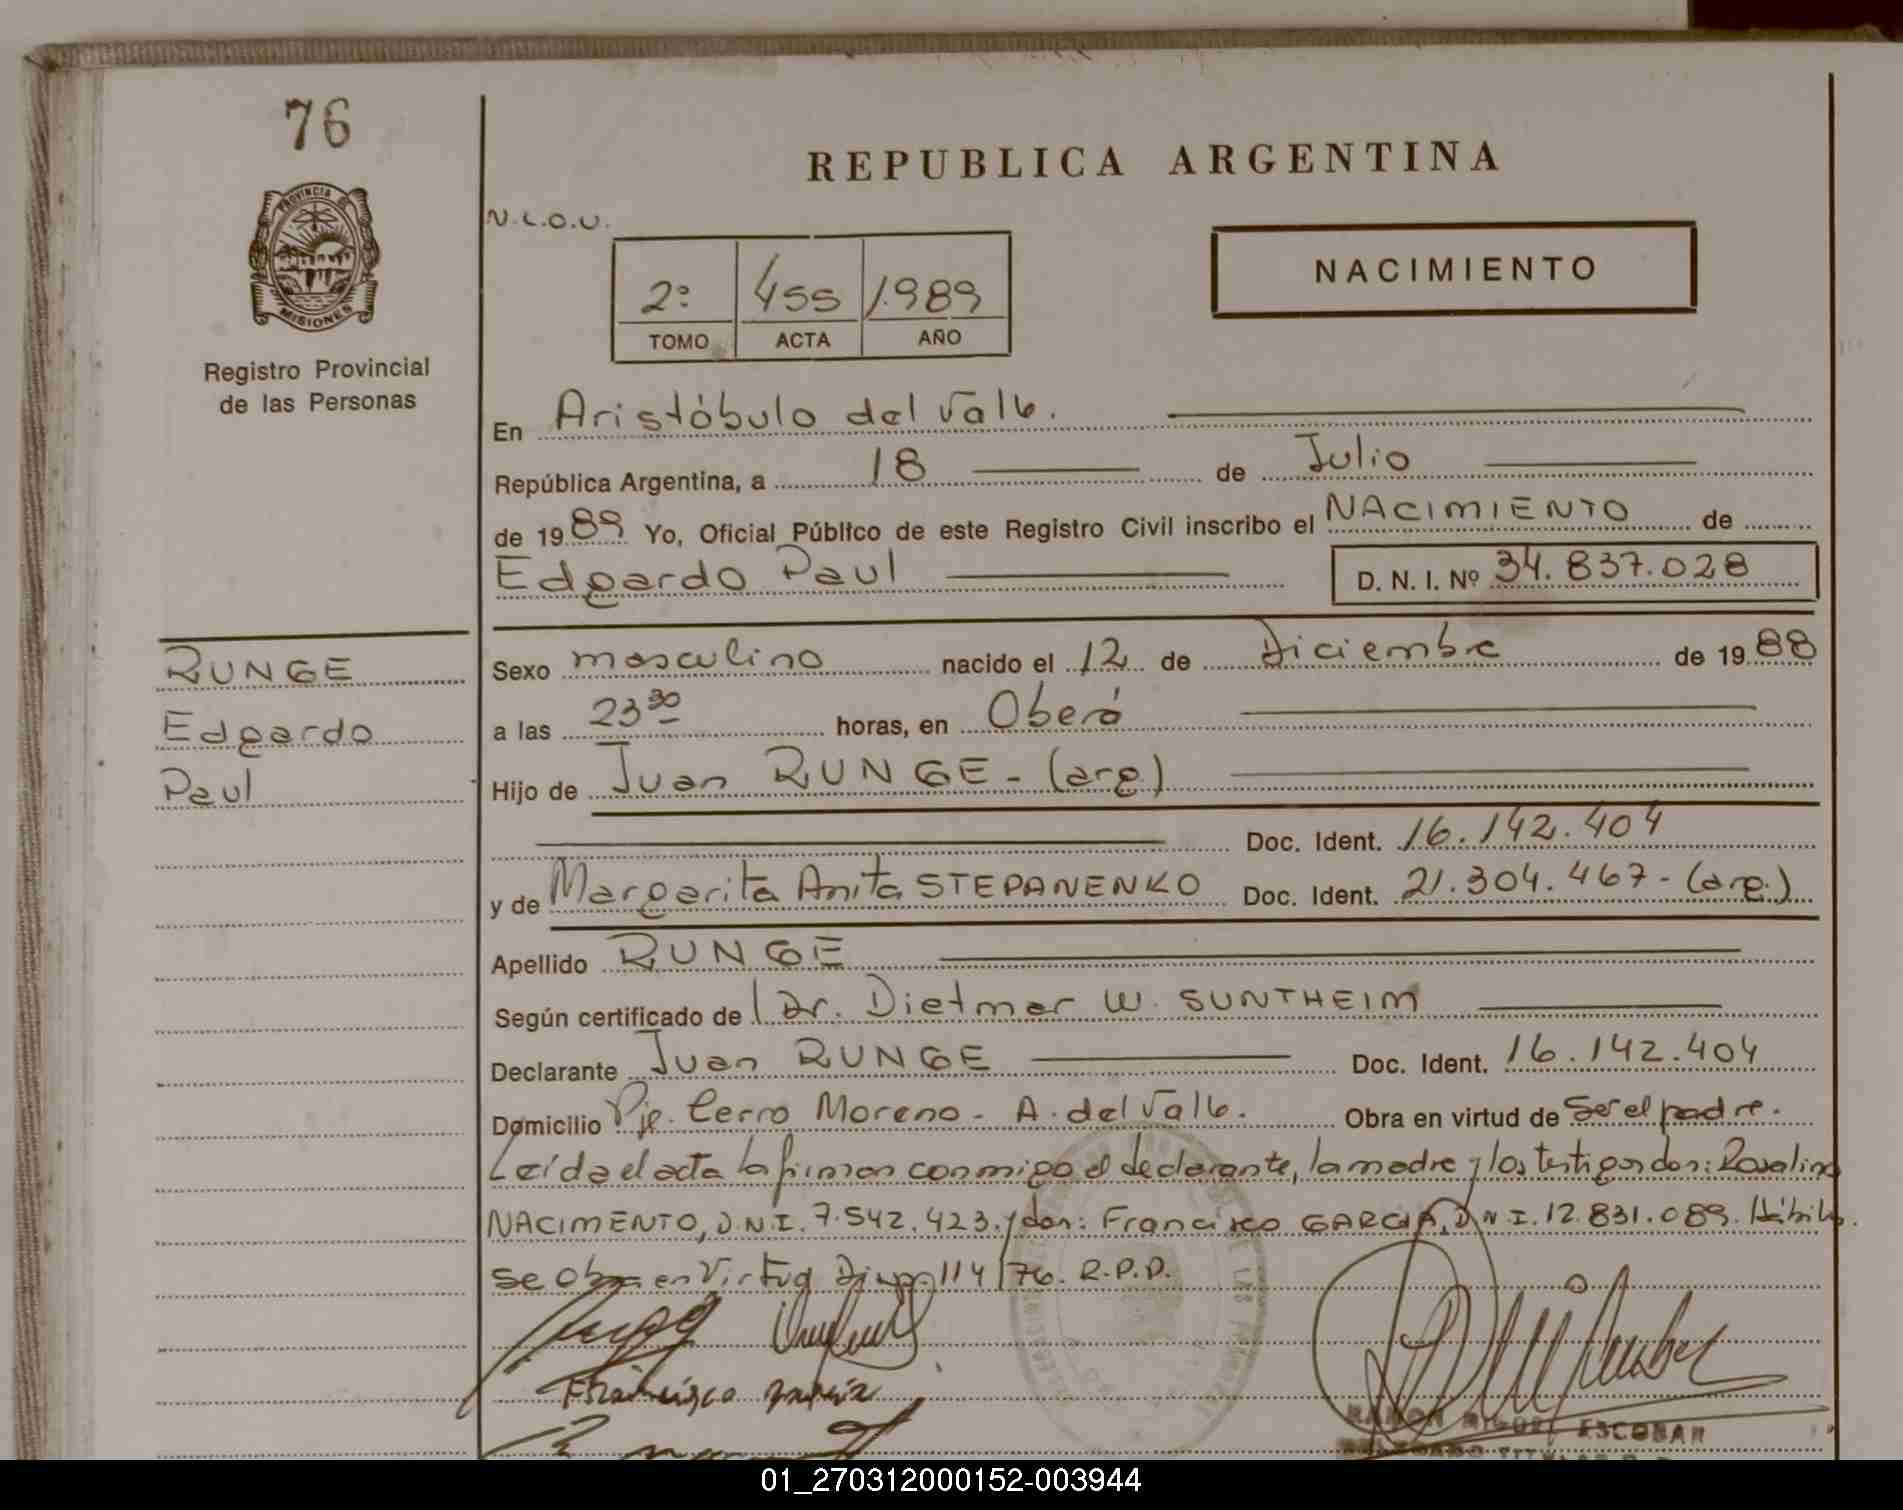 76
PROVINCIA DE
MISIONES
Registro Provincial
de las Personas
REPUBLICA ARGENTINA
N.L.O.U.
2º 455 1.989
TOMO ACTA AÑO
NACIMIENTO
En Aristóbulo del Valle.
República Argentina, a 18 de Julio
de 1989 Yo, Oficial Público de este Registro Civil inscribo el NACIMIENTO de
Edgardo Paul D. N. I. Nº 34.837.028
RUNGE
Edgardo
Paul
Sexo masculino nacido el 12 de Diciembre de 1988
a las 23 30 horas, en Oberá
Hijo de Juan RUNGE - (arg.)
Doc. Ident. 16.142.404
y de Margarita Anita STEPANENKO Doc. Ident. 21.304.467 - (arg.)
Apellido RUNGE
Según certificado de Dr. Dietmar W. SUNTHEIM
Declarante Juan RUNGE Doc. Ident. 16.142.404
Domicilio Pje. Cerro Moreno - A. del Valle. Obra en virtud de ser el padre.
Leída el acta la firman conmigo el declarante, la madre y los testigos don: Rosalino
NACIMENTO, D.N.I. 7.542.423. y don: Francisco GARCIA, D.N.I. 12.831.089. Hábiles.
se obra en Virtud Disp. 114/76. R.P.P.
Francisco garcia
RAMON MIGUEL ESCOBAR
01_270312000152-003944